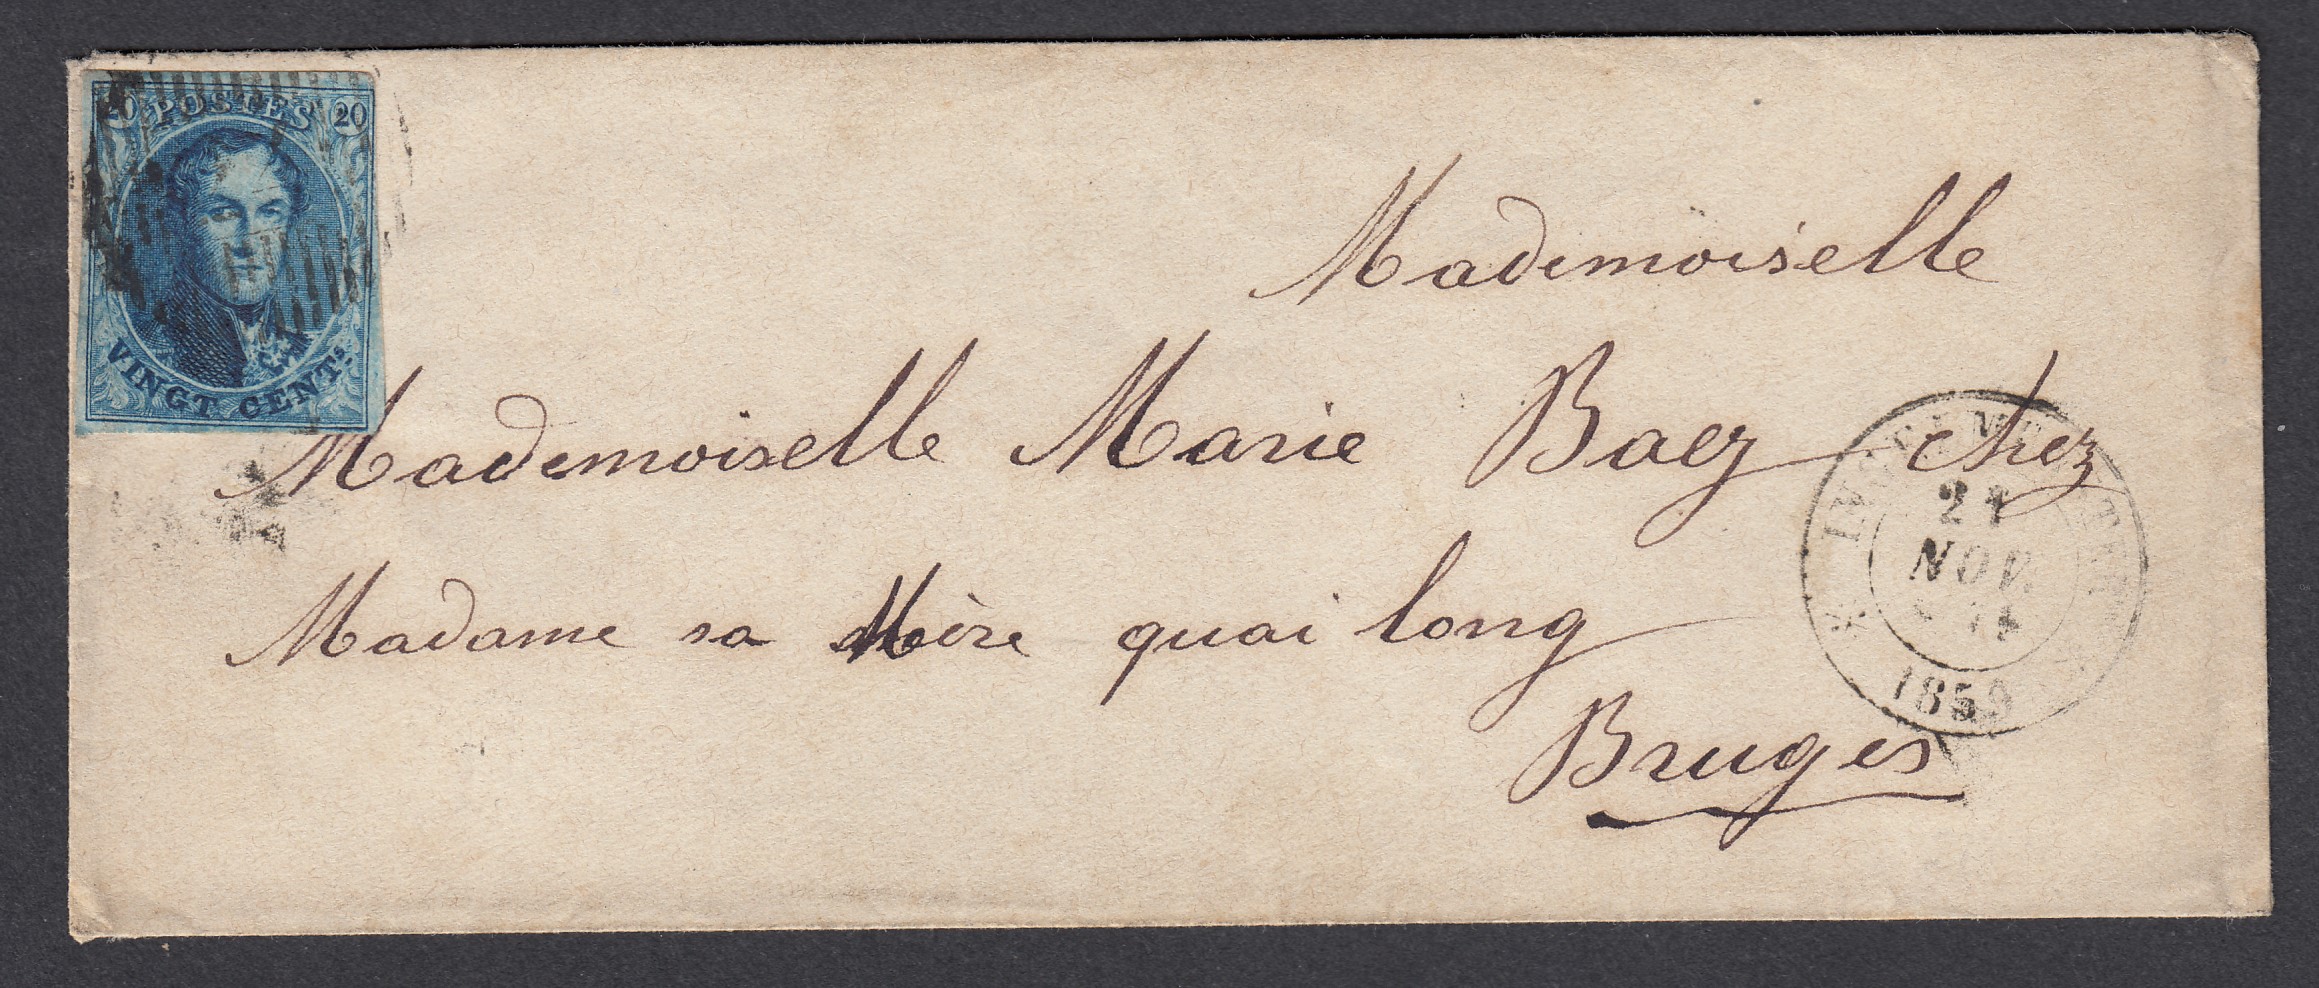 20 POSTES 20
VINGT CENTS.
Mademoiselle
Mademoiselle Marie Baey chez
Madame sa Mère quai long
Bruges
NOV.
1859